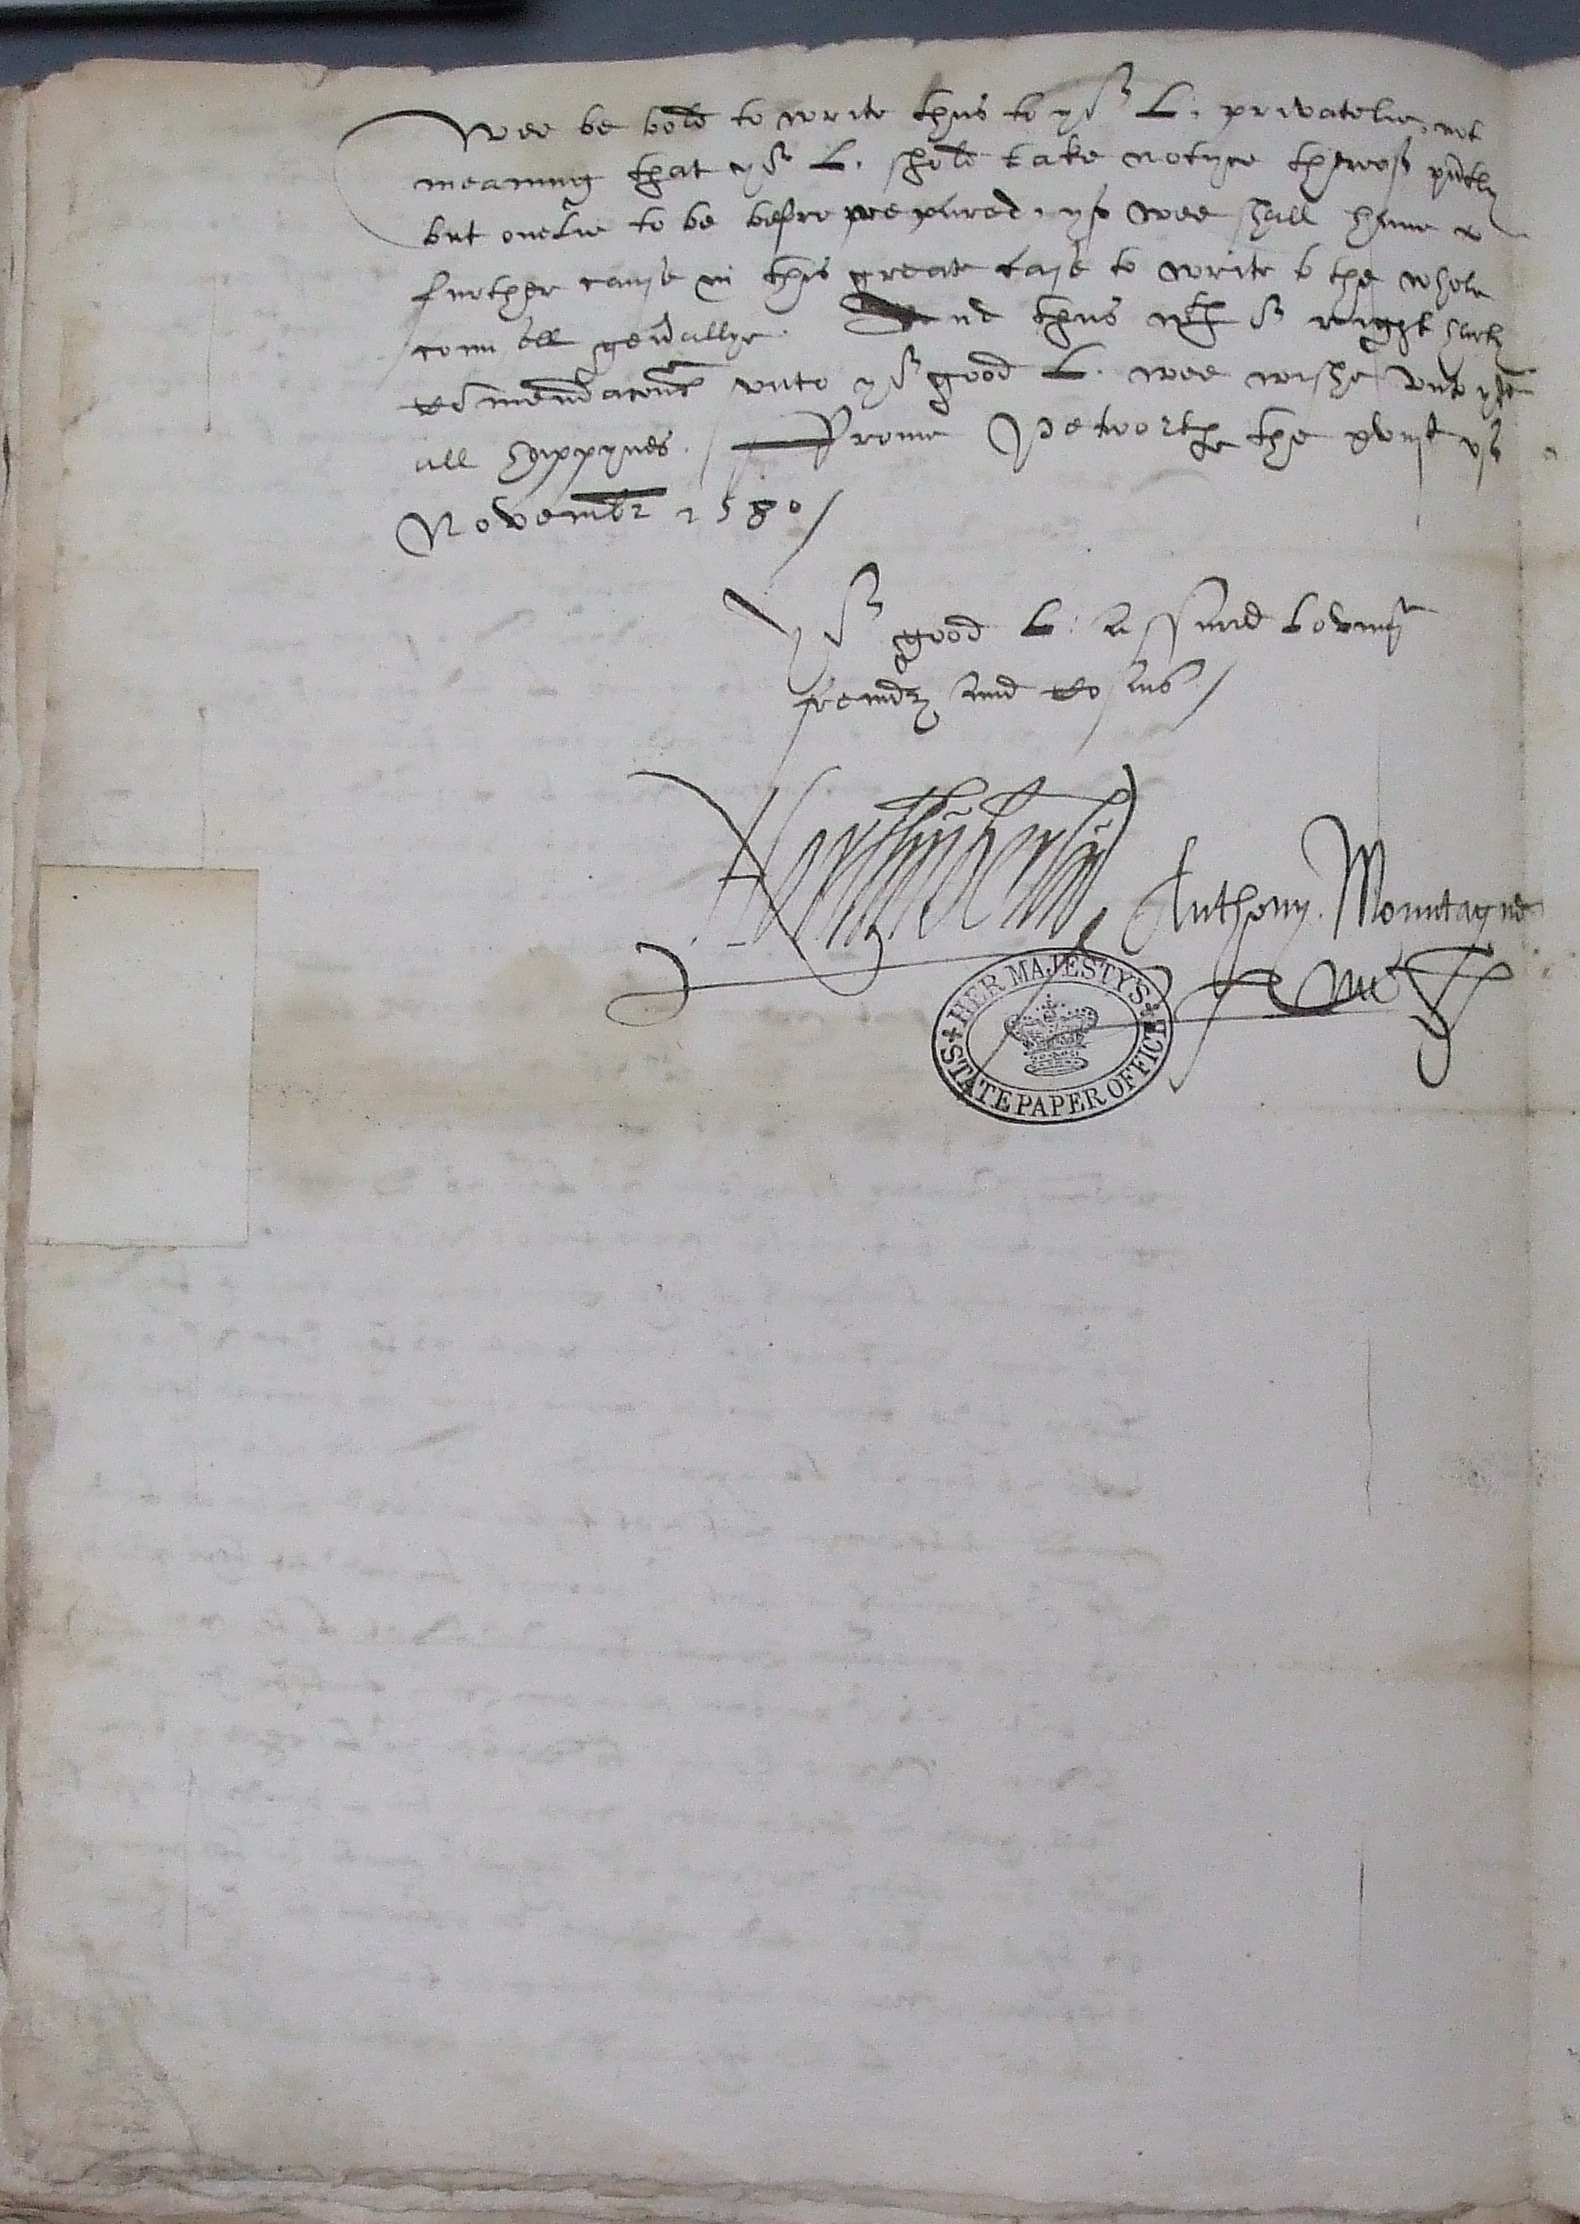 Wee be bold to write thus to yor L. privatelie, not
meaning that yor L. shold take notyce therof pñtly
but onelie to be before prepared, yf wee shall have
further cause in this greate case to write to the whole
counsell gen̄allye. And thus wth or right harty
cōmendacōns vnto yor good L. wee wishe vnto
all happynes. From Petworthe the of
Novembr 1580 /
Yor good L: assured loving
frendꝭ and cosins /
Northūberlād Anthony. Mountague
HER MAJESTY'S STATE PAPER OFFICE